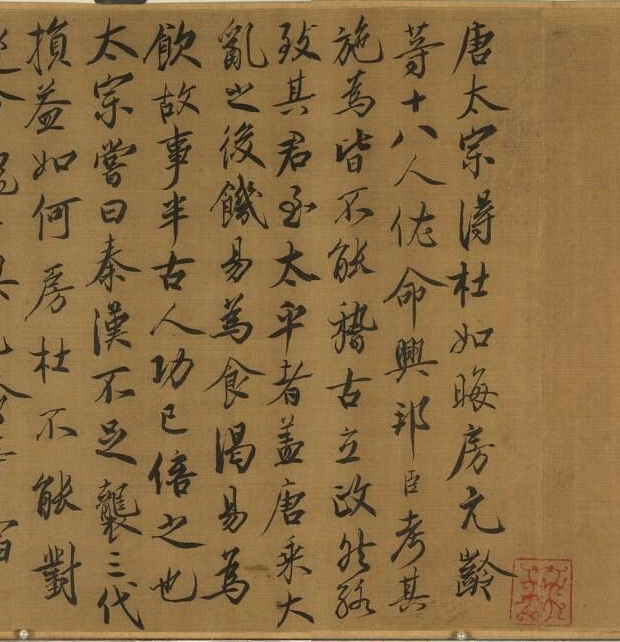 唐太宗得杜如晦房元齡
等十八人佐命興邦臣考其
施為皆不能稽古立政然
致其君至太平者蓋唐乘大
亂之後饑易為食渴易為
飲故事半古人功已倍之也
太宗嘗曰秦漢不足襲三代
損益如何房杜不能對